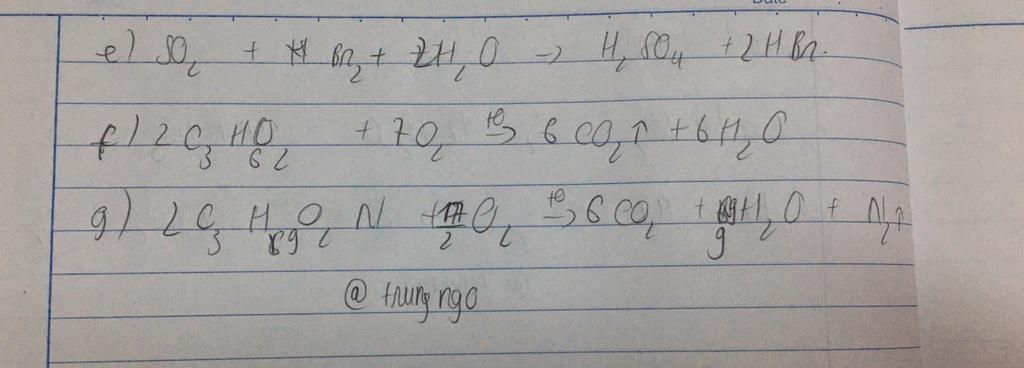 e) SO₂ + Br₂ + 2H₂O → H₂SO₄ + 2HBr.
f) 2C₃H₆O₂ + 7O₂ t⁰→ 6CO₂↑ + 6H₂O
g) 2C₃H₉O₂N + 17/2 O₂ t⁰→ 6CO₂ + 9H₂O + N₂↑
@trungngo